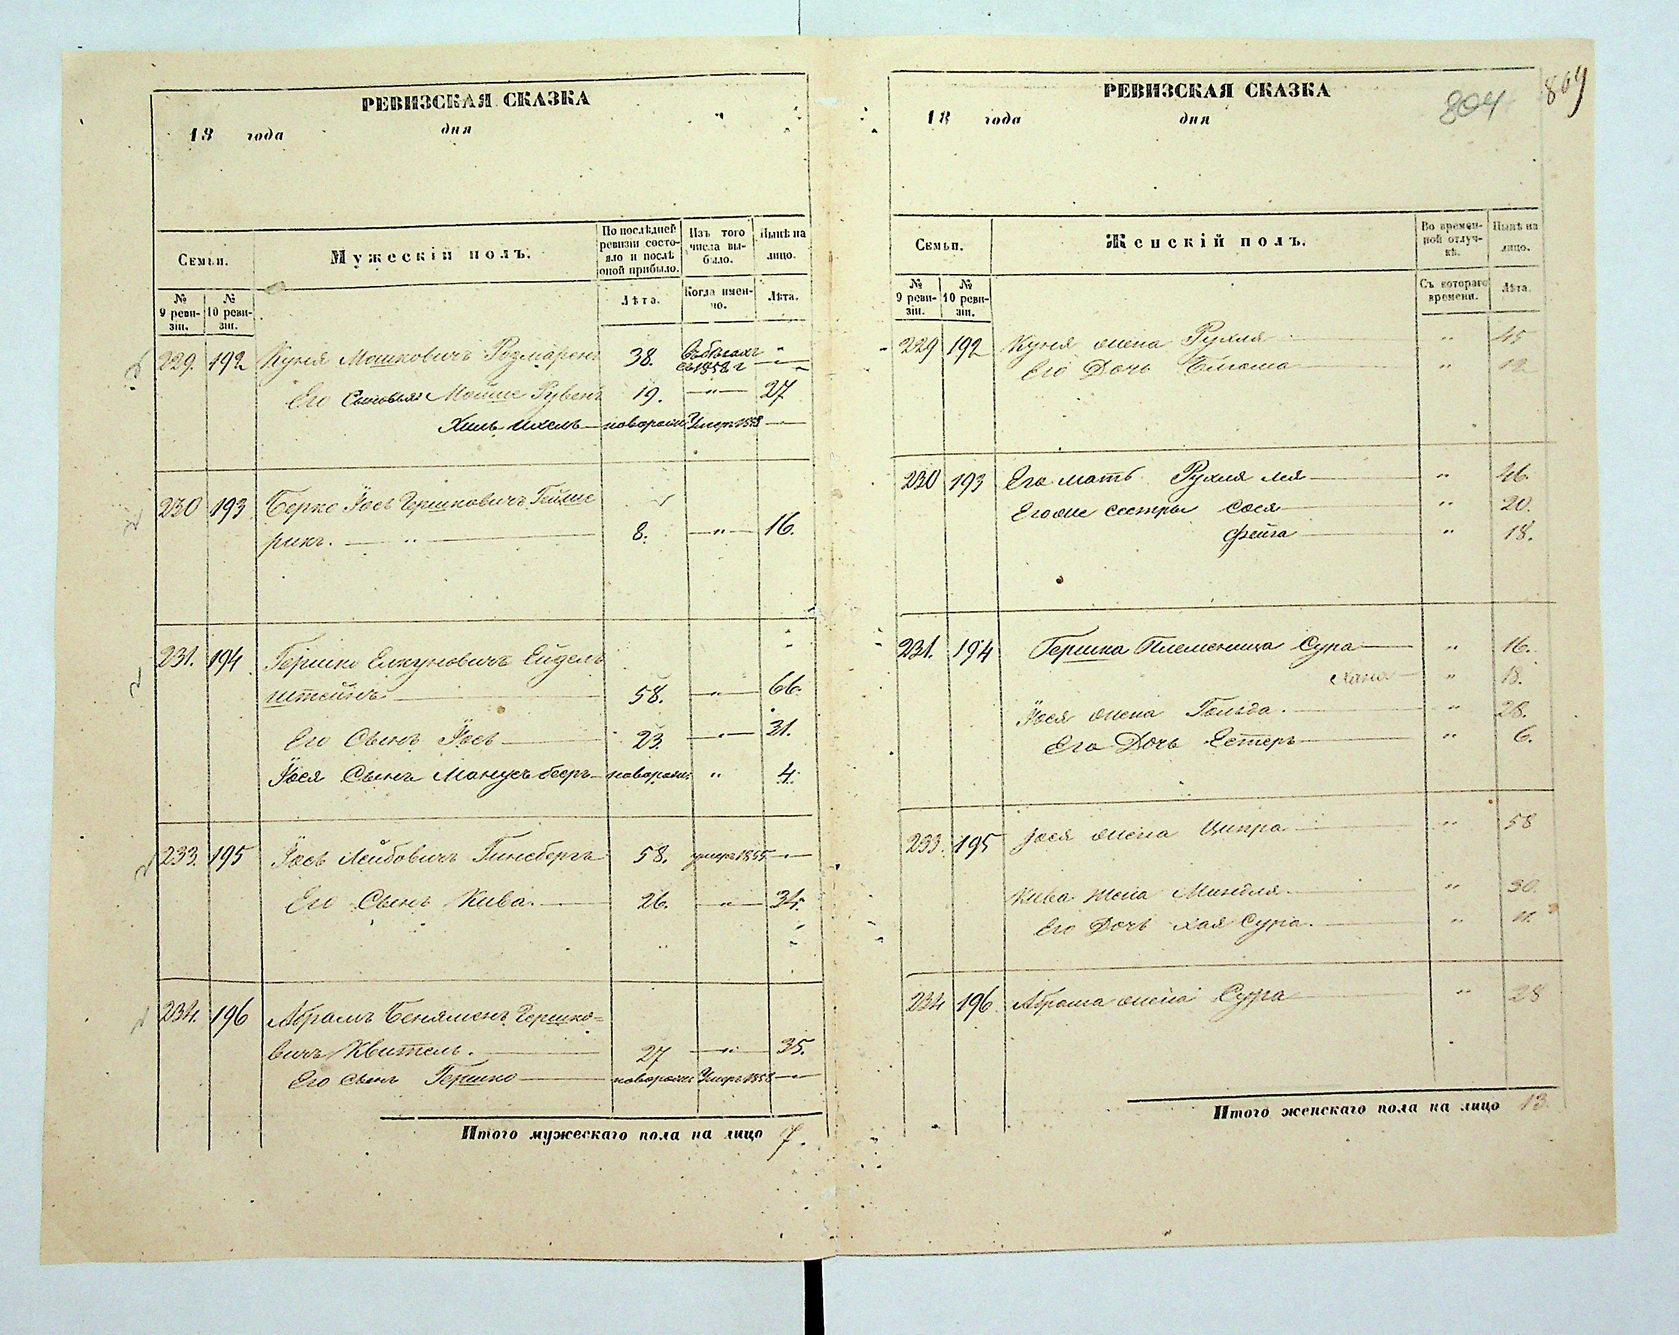 РЕВИЗСКАЯ СКАЗКА
18 года дня
Семьи.
Мужескій полъ.
По послѣдней ревизіи состояло и послѣ оной прибыло.
Изъ того числа выбыло.
Нынѣ на лицо.
№ 9 ревизіи.
№ 10 ревизіи.
Лѣта.
Когда именно.
Лѣта.
229. 192 Куня Мошковичъ Розмаренъ 38. Въ бѣгахъ съ 1858 г "
Его Сыновья Мойше Рувенъ 19. " 27
Хиль Ихель новорож: Умеръ 1858
230 193 Берко Іосъ Гершковичъ
рикъ. " 8. " 16.
231. 194 Гершко Ейдель
штейнъ 58. " 66.
Его Сынъ Іосъ 23. " 31.
Іося Сынъ Манусъ бееръ новорож: " 4.
233. 195 Іосъ Лейбовичъ Гинсбергъ 58. умеръ 1855
Его Сынъ Кива. 26. " 34.
234. 196 Абрамъ Бенямень Гершко=
вичъ Квитель. 27 " 35.
Его Сынъ Гершко новорож: Умеръ 1858
Итого мужескаго пола на лицо 7.
РЕВИЗСКАЯ СКАЗКА
804 809
18 года дня
Семьи.
Женскій полъ.
Во временной отлучкѣ.
Нынѣ на лицо.
№ 9 ревизіи.
№ 10 ревизіи.
Съ котораго времени.
Лѣта.
229 192 Куня жена Рухля " 45
Его Дочь Блюма " 12
230 193 Его мать Рухля лея " 46.
Его же сестры Сося " 20.
Фейга " 18.
231. 194 Гершка Племеница Сура " 16.
Хана " 18.
Іося жена Гольда. " 28.
Его Дочь Естеръ " 6.
233. 195 Іося жена Ципра " 58
Кива жена Миндля. " 30.
Его Дочь Хая Сура. " 11.
234 196 Абрама жена Сура " 28
Итого женскаго пола на лицо 13.